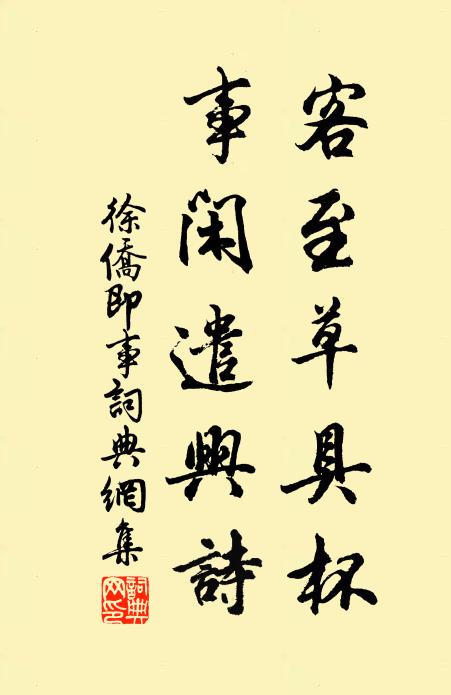 客至草具杯
事閑遣興詩
徐僑即事詞典網集
詞典網印